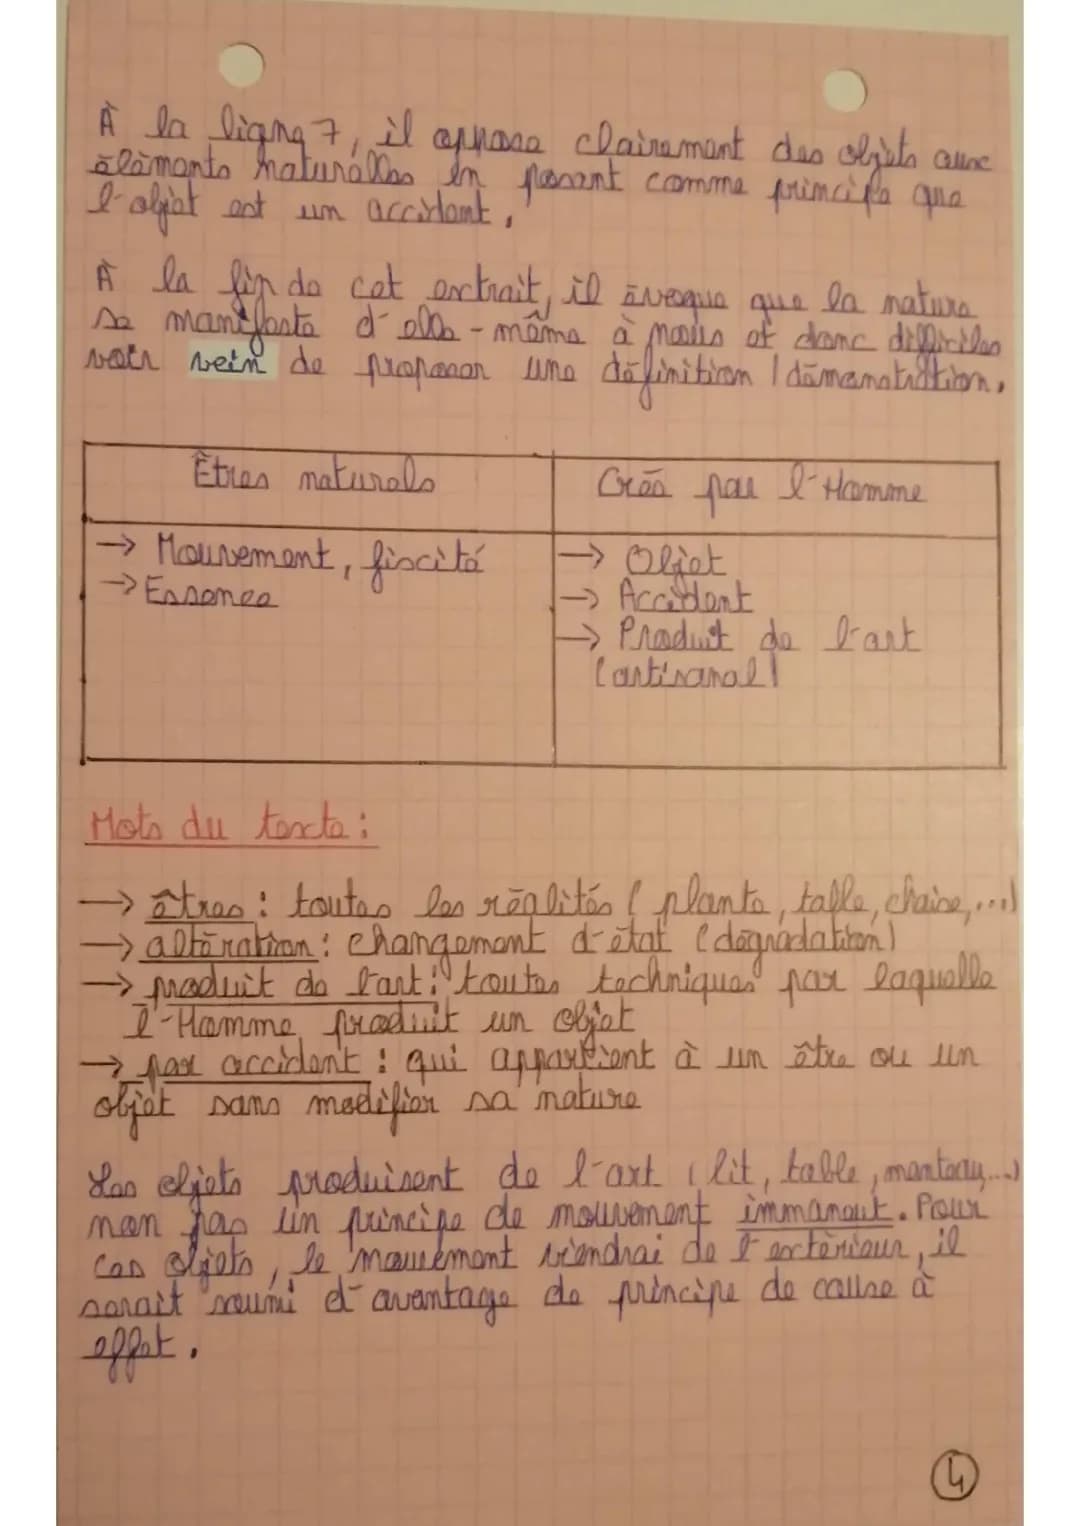 À la ligne 7, il oppose clairement des objets aux
éléments naturélles en posant comme principe que
l'objet est un accident.
À la fin de cet extrait, il évoque que la nature
se manifeste d'elle-même à nous et donc difficiles
voir vein de proposer une définition / démonstration.
Êtres naturels
Créé par l'Homme
→ Mouvement, fiscité
→ Essence
→ Objet
→ Accident
→ Produit de l'art
(artisanal)
Mots du texte :
→ êtres : toutes les réalités (plante, table, chaise,...)
→ altération : changement d'état (dégradation)
→ produit de l'art : toutes techniques par laquelle
l'Homme produit un objet
→ par accident : qui appartient à un être ou un
objet sans modifier sa nature
Les objets produisent de l'art (lit, table, manteau,...)
non pas un principe de mouvement immanent. Pour
ces objets, le mouvement viendrai de l'extérieur, il
serait soumi d'avantage de principe de cause à
effet.
4